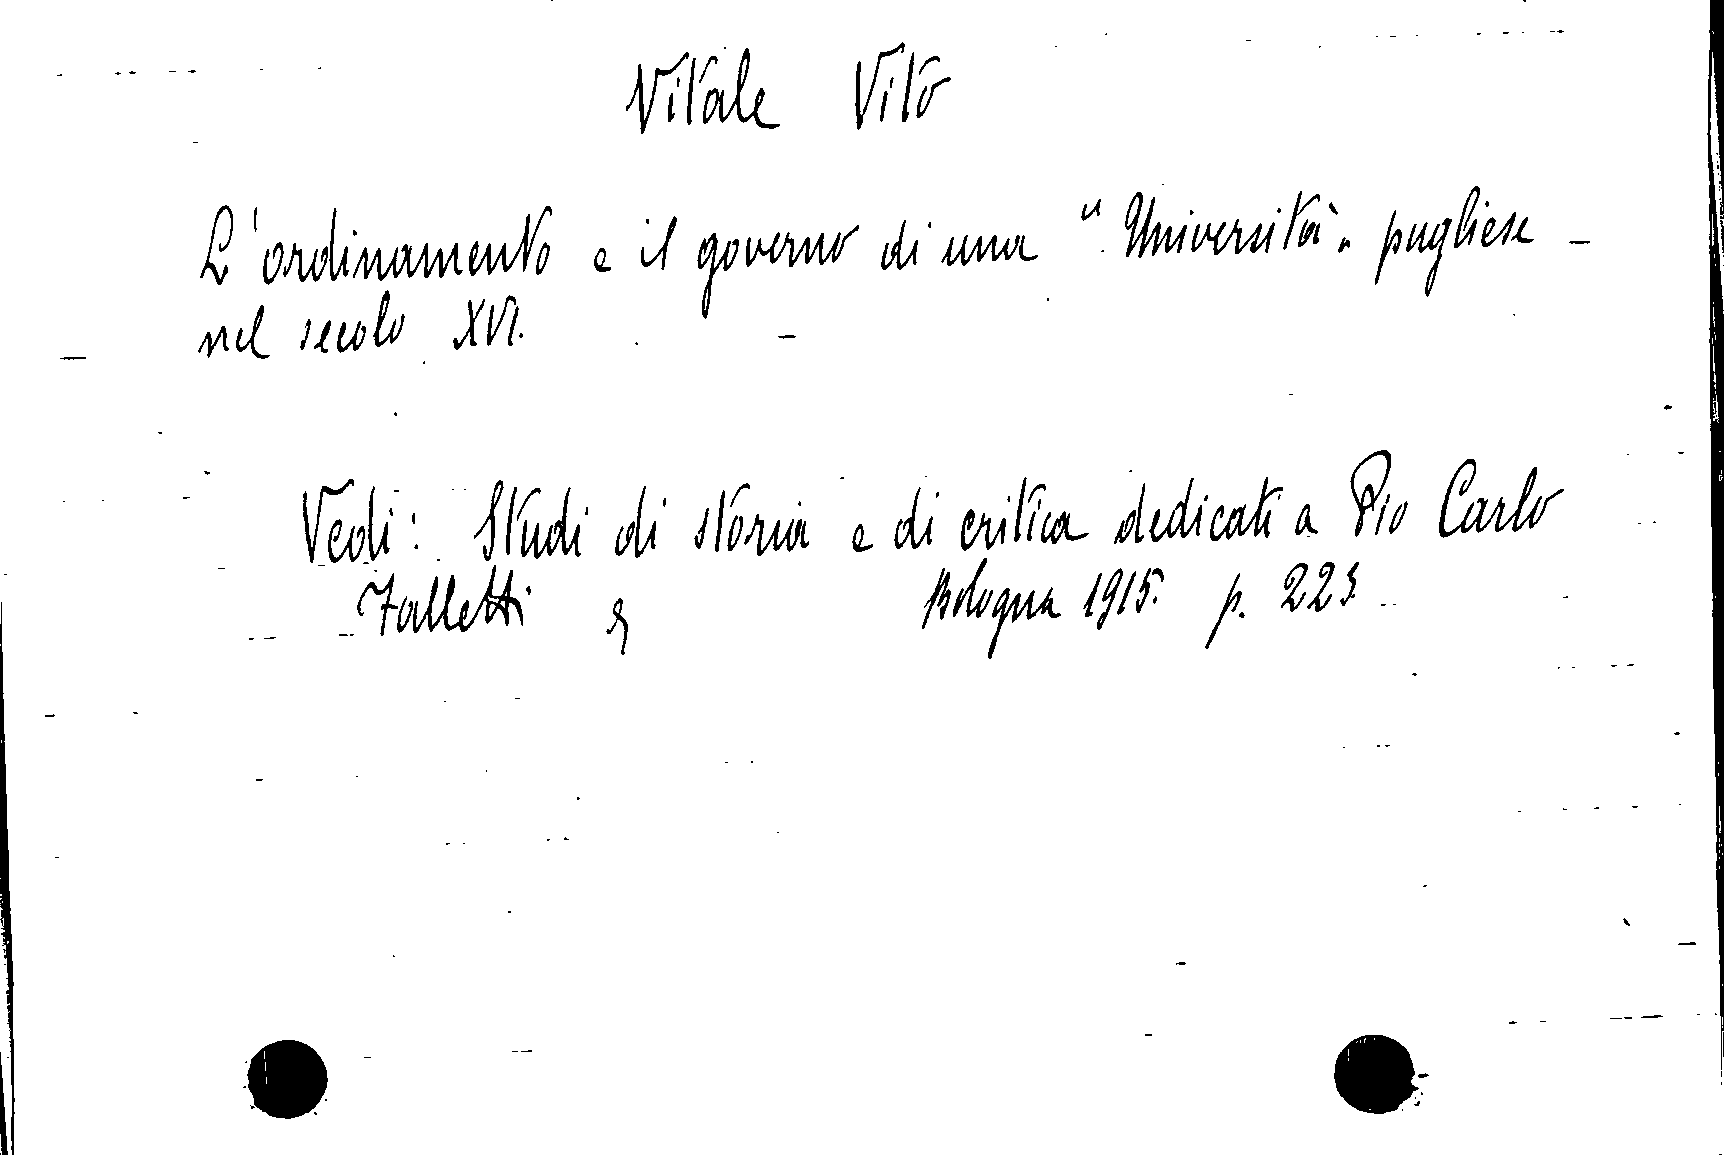 Vitale Vito
L'ordinamento e il governo di una "Università" pugliese -
nel secolo XVI. -
Vedi: Studi di storia e di critica dedicati a Pio Carlo
Falletti Bologna 1915. p. 223.